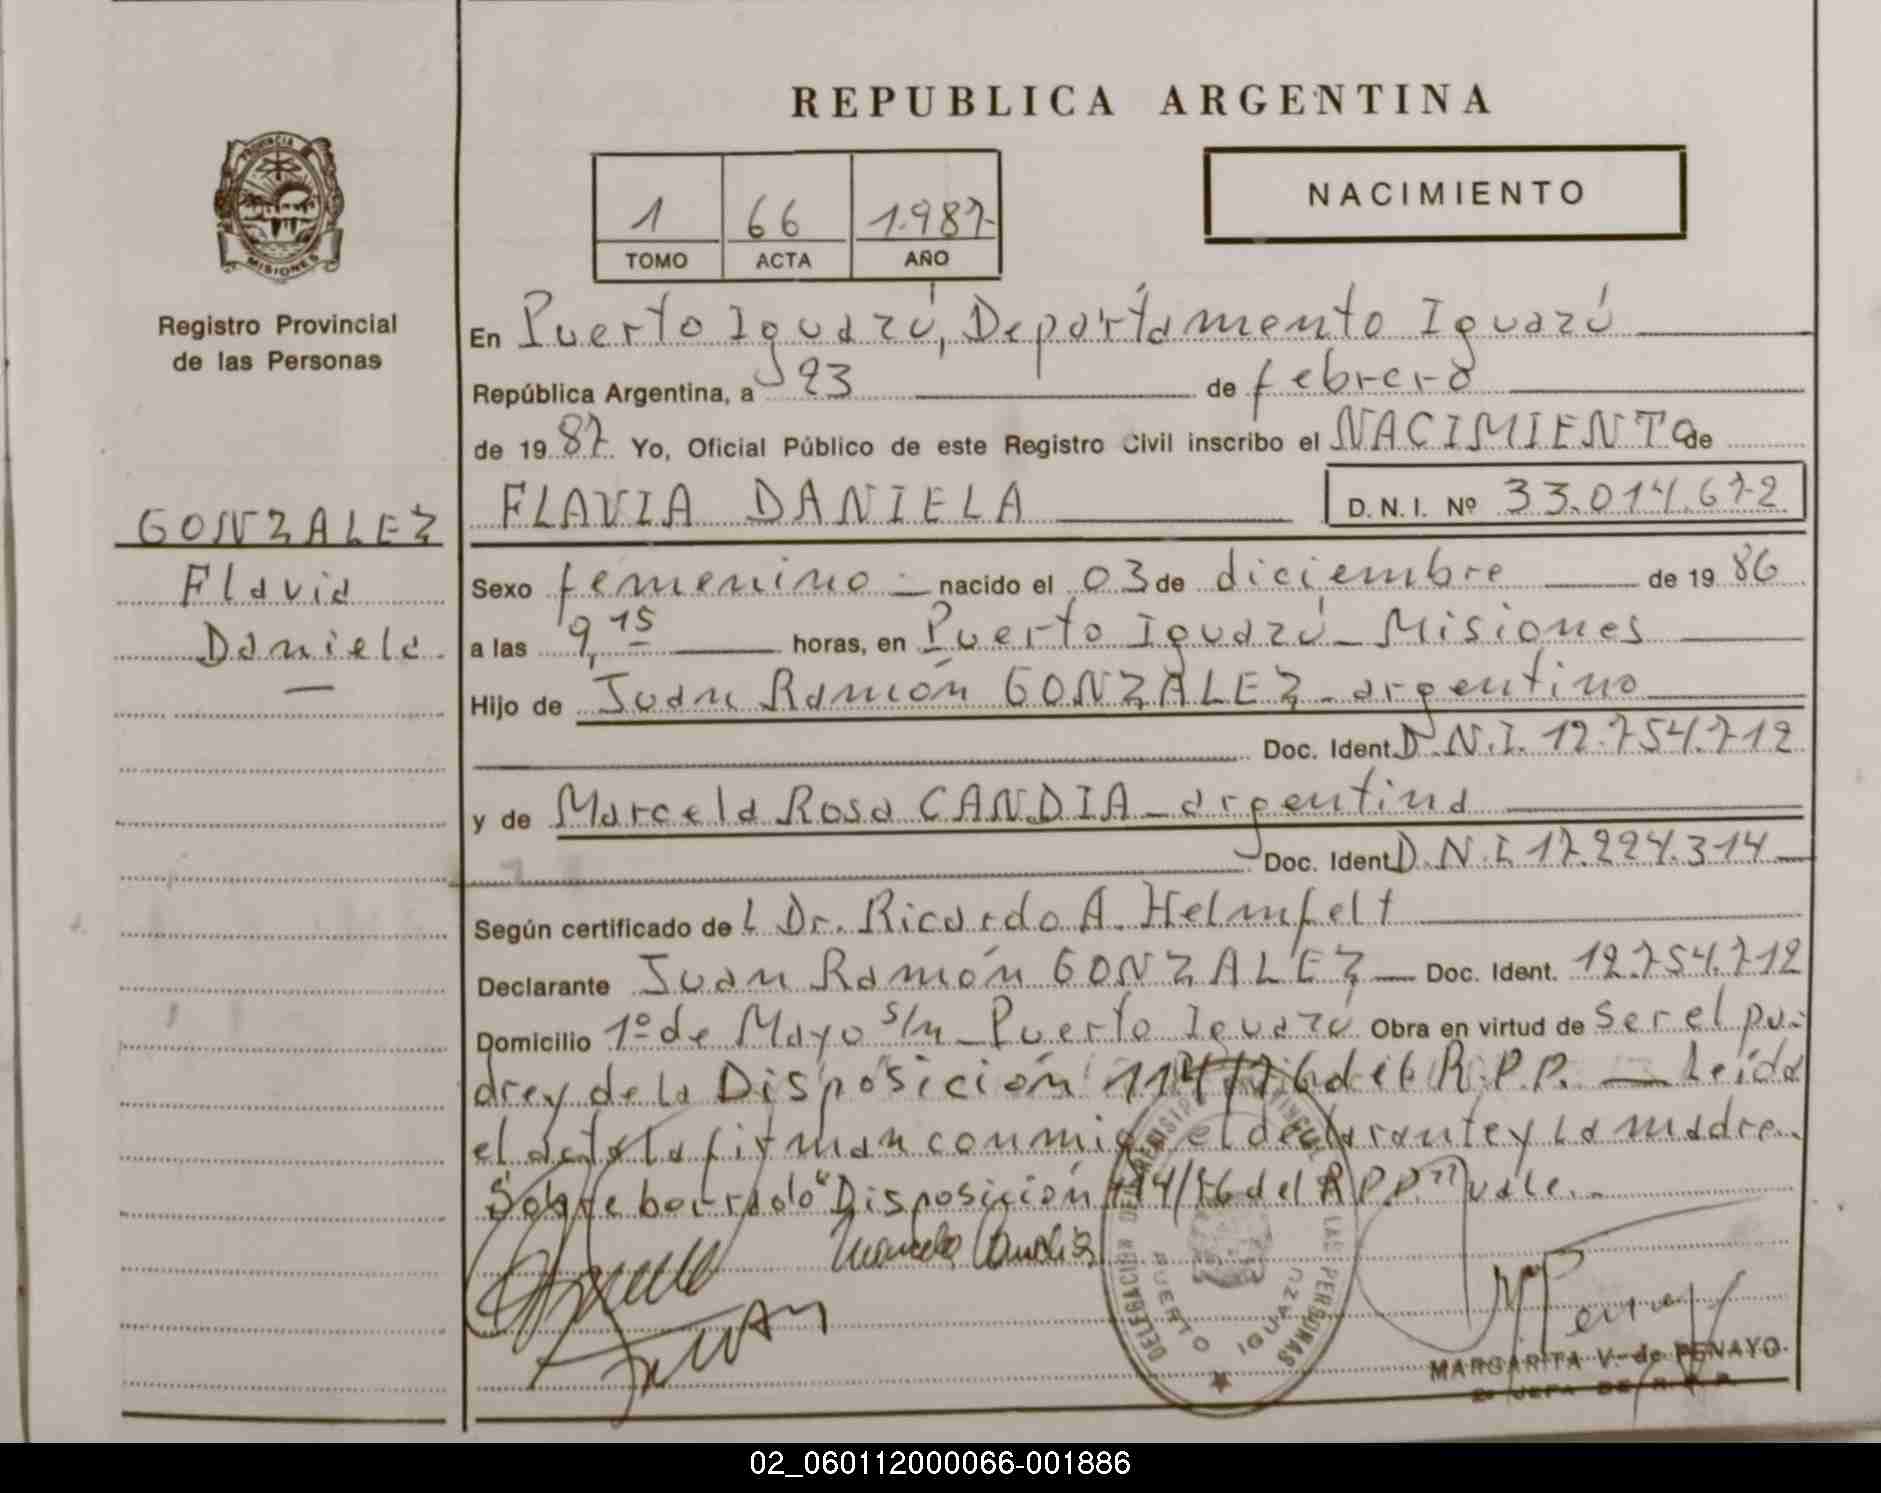 REPUBLICA ARGENTINA
PROVINCIA
MISIONES
Registro Provincial
de las Personas
1 66 1.987-
TOMO ACTA AÑO
NACIMIENTO
En Puerto Iguazú, Departamento Iguazú
República Argentina, a 23 de febrero
de 19 87 Yo, Oficial Público de este Registro Civil inscribo el NACIMIENTO de
GONZALEZ
Flavia
Daniela
FLAVIA DANIELA D.N.I. Nº 33.014.672
Sexo femenino nacido el 03 de diciembre de 19 86
a las 9,15 horas, en Puerto Iguazú - Misiones
Hijo de Juan Ramón GONZALEZ - argentino
Doc. Ident. D.N.I. 12.754.712
y de Marcela Rosa CANDIA - argentina
Doc. Ident. D.N.I 17.224.314
Según certificado de L Dr. Ricardo A. Helmfelt
Declarante Juan Ramón GONZALEZ Doc. Ident. 12.754.712
Domicilio 1º de Mayo s/n - Puerto Iguazú Obra en virtud de Ser el pa-
dre y de la Disposición 114/76 del R.P.P. Leída
el acta la firman conmigo el declarante y la madre.
Sobre borrado "Disposición 114/76 del R.P.P" vale.
Marcela Candia
DELEGACION DEL REGISTRO PROVINCIAL DE LAS PERSONAS
PUERTO IGUAZU
MARGARITA V. de PENAYO
2º JEFA DE R. P. P.
02_060112000066-001886